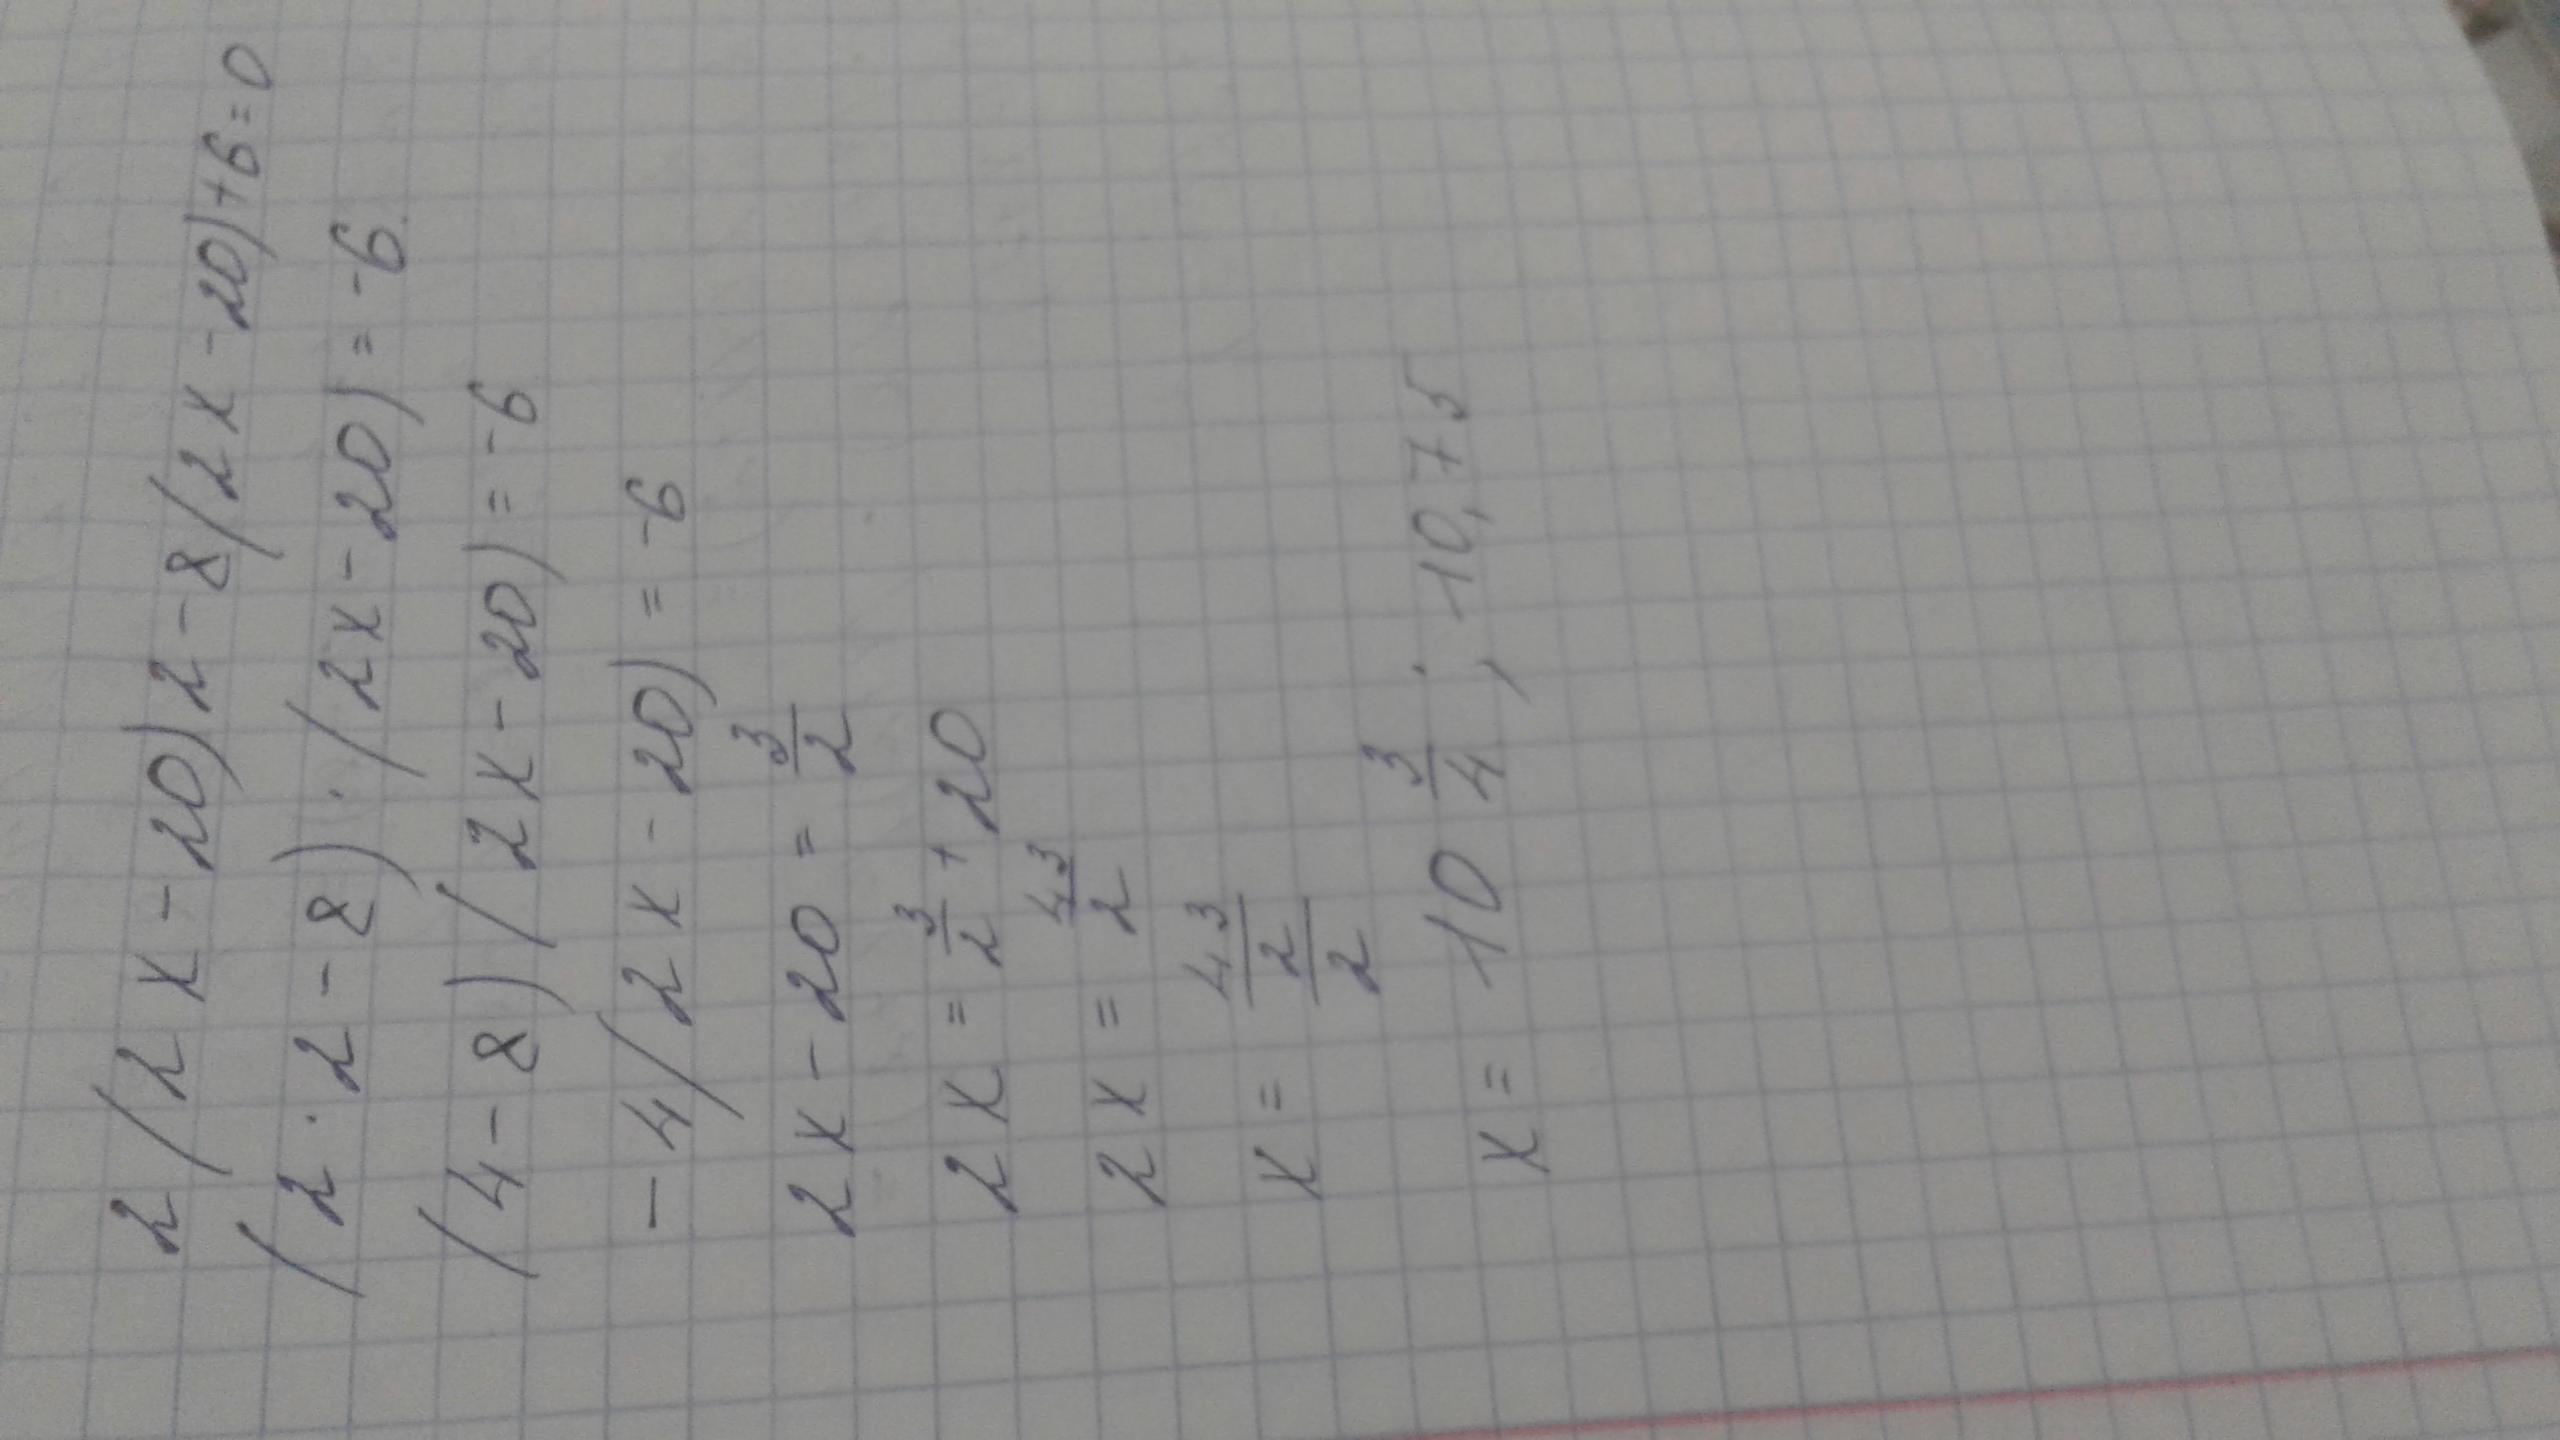 2(2x-20)2-8(2x-20)+6=0
(2·2-8)·(2x-20)=-6
(4-8)(2x-20)=-6
-4(2x-20)=-6
2x-20=3/2
2x=3/2+20
2x=43/2
x=43/2/2
x=10 3/4; 10,75